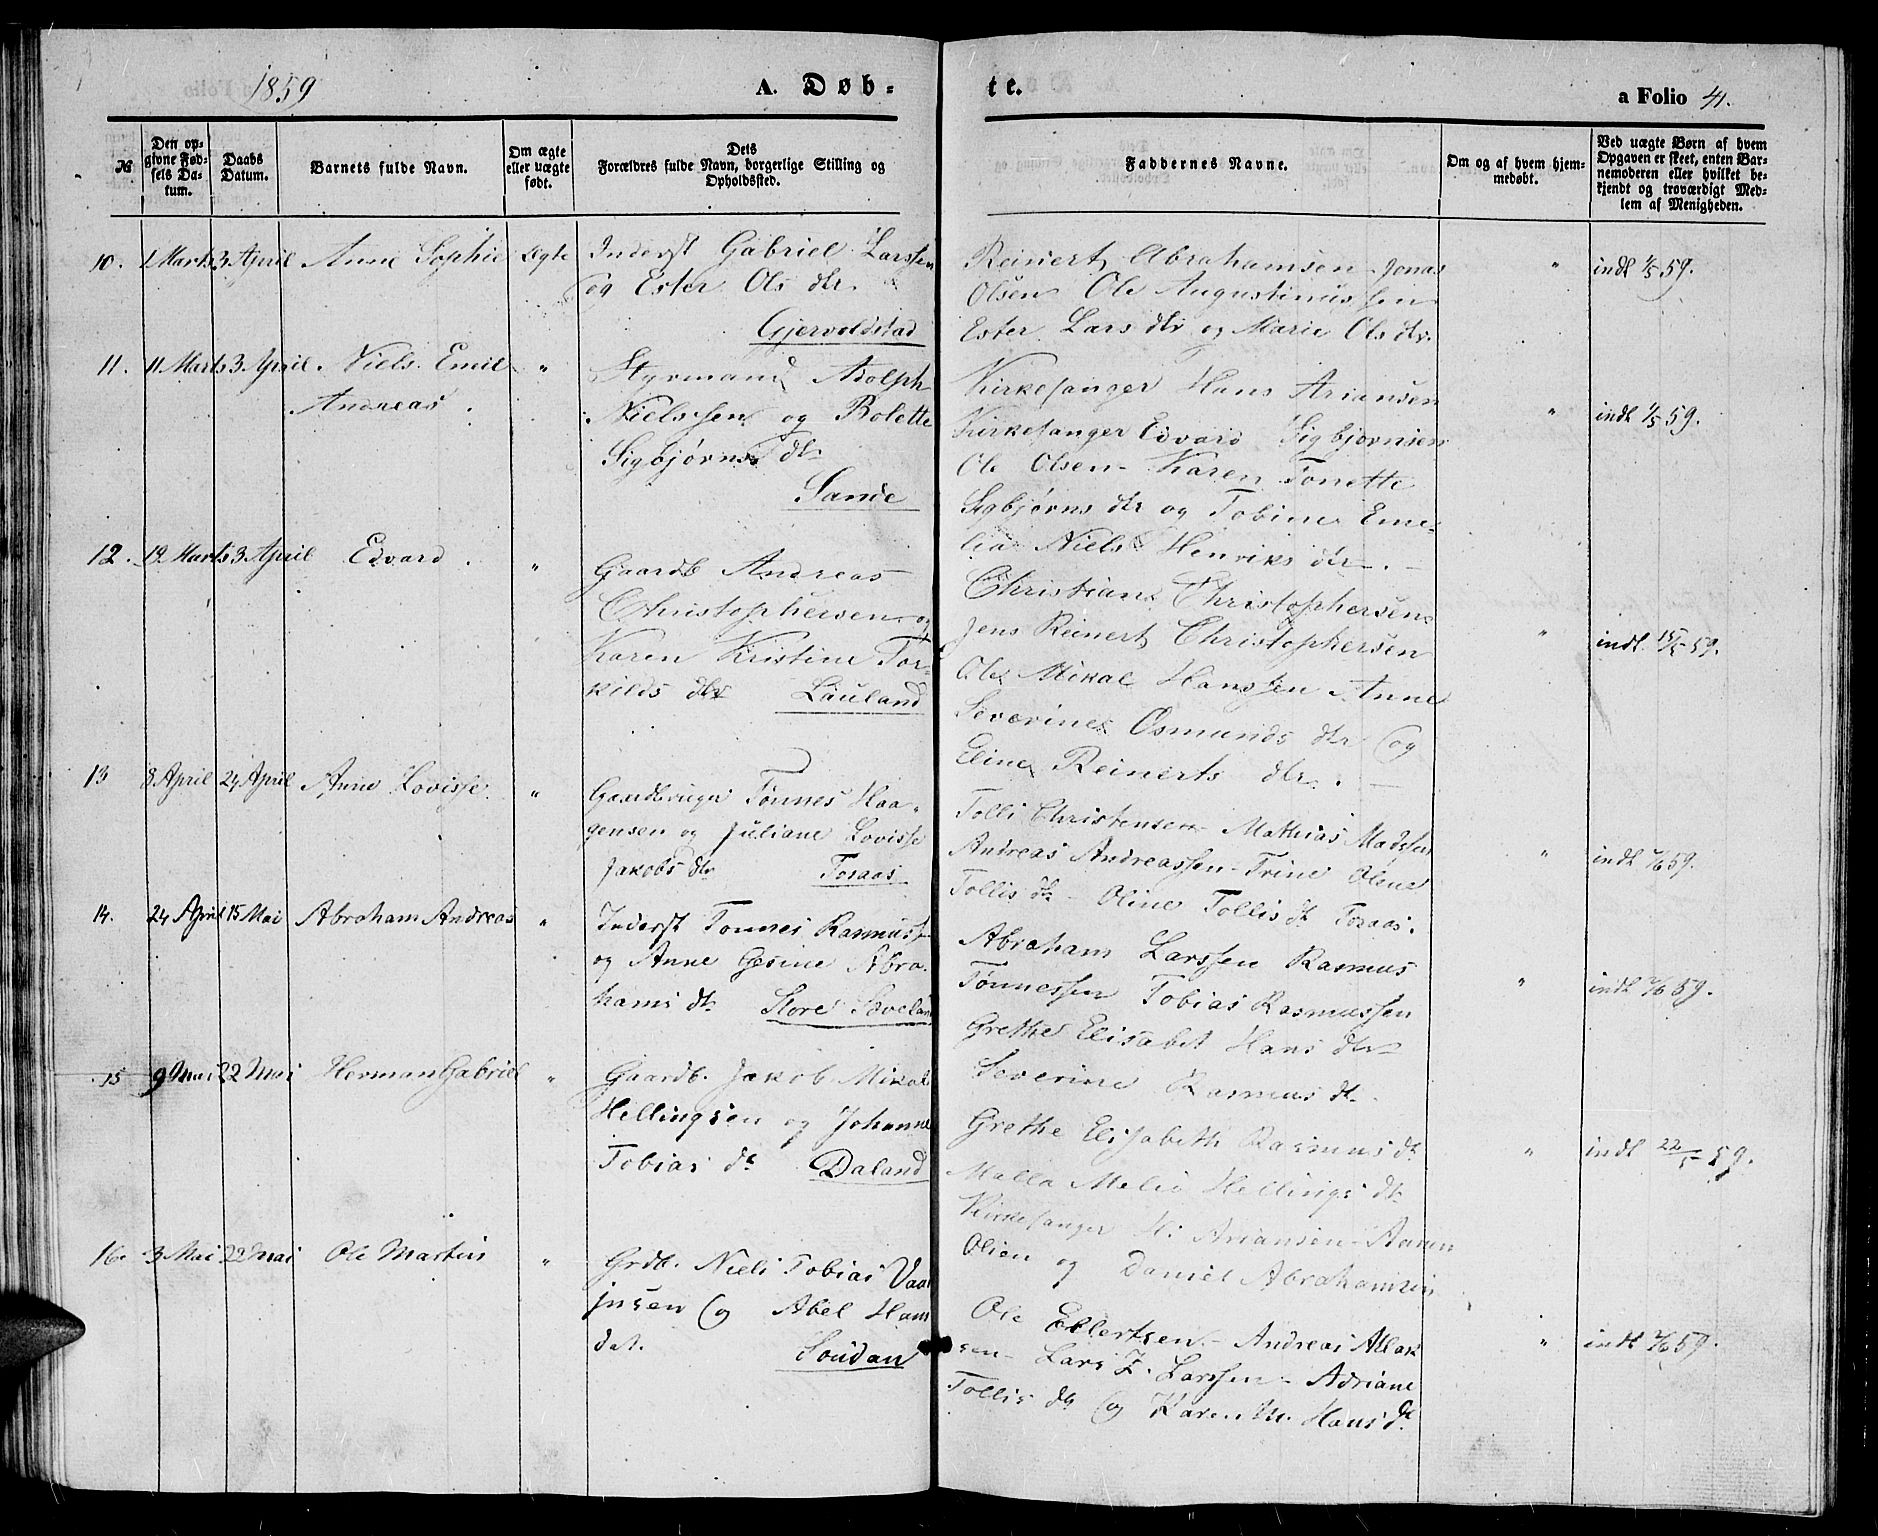 1859
A. Døb-
te.
a Folio 41.
№
Den op-
givne Fød-
sels Da-
tum.
Daabs
Datum.
Barnets fulde Navn.
Om ægte
eller uægte
født.
Dets
Forældres fulde Navn, borgerlige Stilling og
Opholdssted.
Faddernes Navne.
Om og af hvem hjem-
medøbt.
Ved uægte Børn af hvem
Opgaven er skeet, enten Bar-
nemoderen eller hvilket be-
kjendt og troværdigt Med-
lem af Menigheden.
10. 1 Marts 3 April Anne Sophie Ægte
Inderst Gabriel Larssen
og Ester Ols dtr.
Gjervoldstad
Reinert Abrahamsen Jonas
Olsen Ole Augustinussen
Ester Lars dtr og Marie Ols dtr.
" indl 1/5 59.
11. 11 Marts 3 April. Niels Emil "
Andreas.
Styrmand Adolph
Nielssen og Bolette
Sigbjørns dtr
Sande
Kirkesanger Hans Ariansen
Kirkesanger Edvard Sigbjørnsen
Ole Olsen - Karen Tonette
Sigbjørns dtr og Tobine Eme-
lia Niels Henriks dtr.
" indl 1/5 59.
12. 19 Marts 3 April Edvard. "
Gaardb Andreas
Christophersen og
Karen Kristine Tor-
kilds dtr Lauland
Christian Christophersen
Jens Reinert Christophersen
Ole Mikal Hanssen Anne
Severine Osmunds dtr og
Eline Reinerts dtr.
" indl. 15/5 59.
13 8 April 24 April Anne Lovisse "
Gaardbruger Tønnes Haa-
gensen og Juliane Lovisse
Jakobs dtr Fosaas
Tolli Christensen Mathias Madssen
Andreas Andreassen - Trine Oline
Tollis dtr - Oline Tollis dt Fosaas.
" indl 59.
14. 24 April 15 Mai Abraham Andreas "
Inderst Tønnes Rasmussen
og Anne Gesine Abra-
hams dtr Store
Abraham Larssen Rasmus
Tønnessen Tobias Rasmussen
Grethe Elisabet Hans dtr
Severine Rasmus dtr.
" indl 59.
15 9 Mai 22 Mai Herman Gabriel "
Gaardb. Jakob Mikal
Hellingsen og Johanne
Tobias dtr Daland
Grethe Elisabeth Rasmus dtr
Malla Hellings dtr
Kirkesanger H. Ariansen - Aanen
Olsen og Daniel Abrahamsen
" indl 22/5 59.
16. 3 Mai 22 Mai Ole Martin "
Grdb. Niels Tobias
og Abel Hans
dat. Soudan
Ole Ellertsen - Andreas Allak
sen - Lars Z. Larssen - Adriane
Tollis dtr og Karen M. Hans dtr
" indl 59.